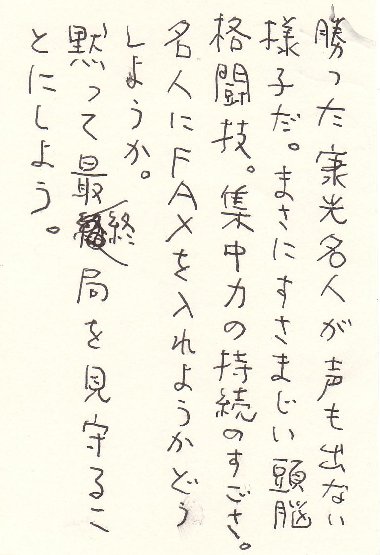 勝った康光名人が声も出ない
様子だ。まさにすさまじい頭脳
格闘技。集中力の持続のすごさ。
名人にFAXを入れようかどう
しようか。
黙って最終局を見守るこ
とにしよう。